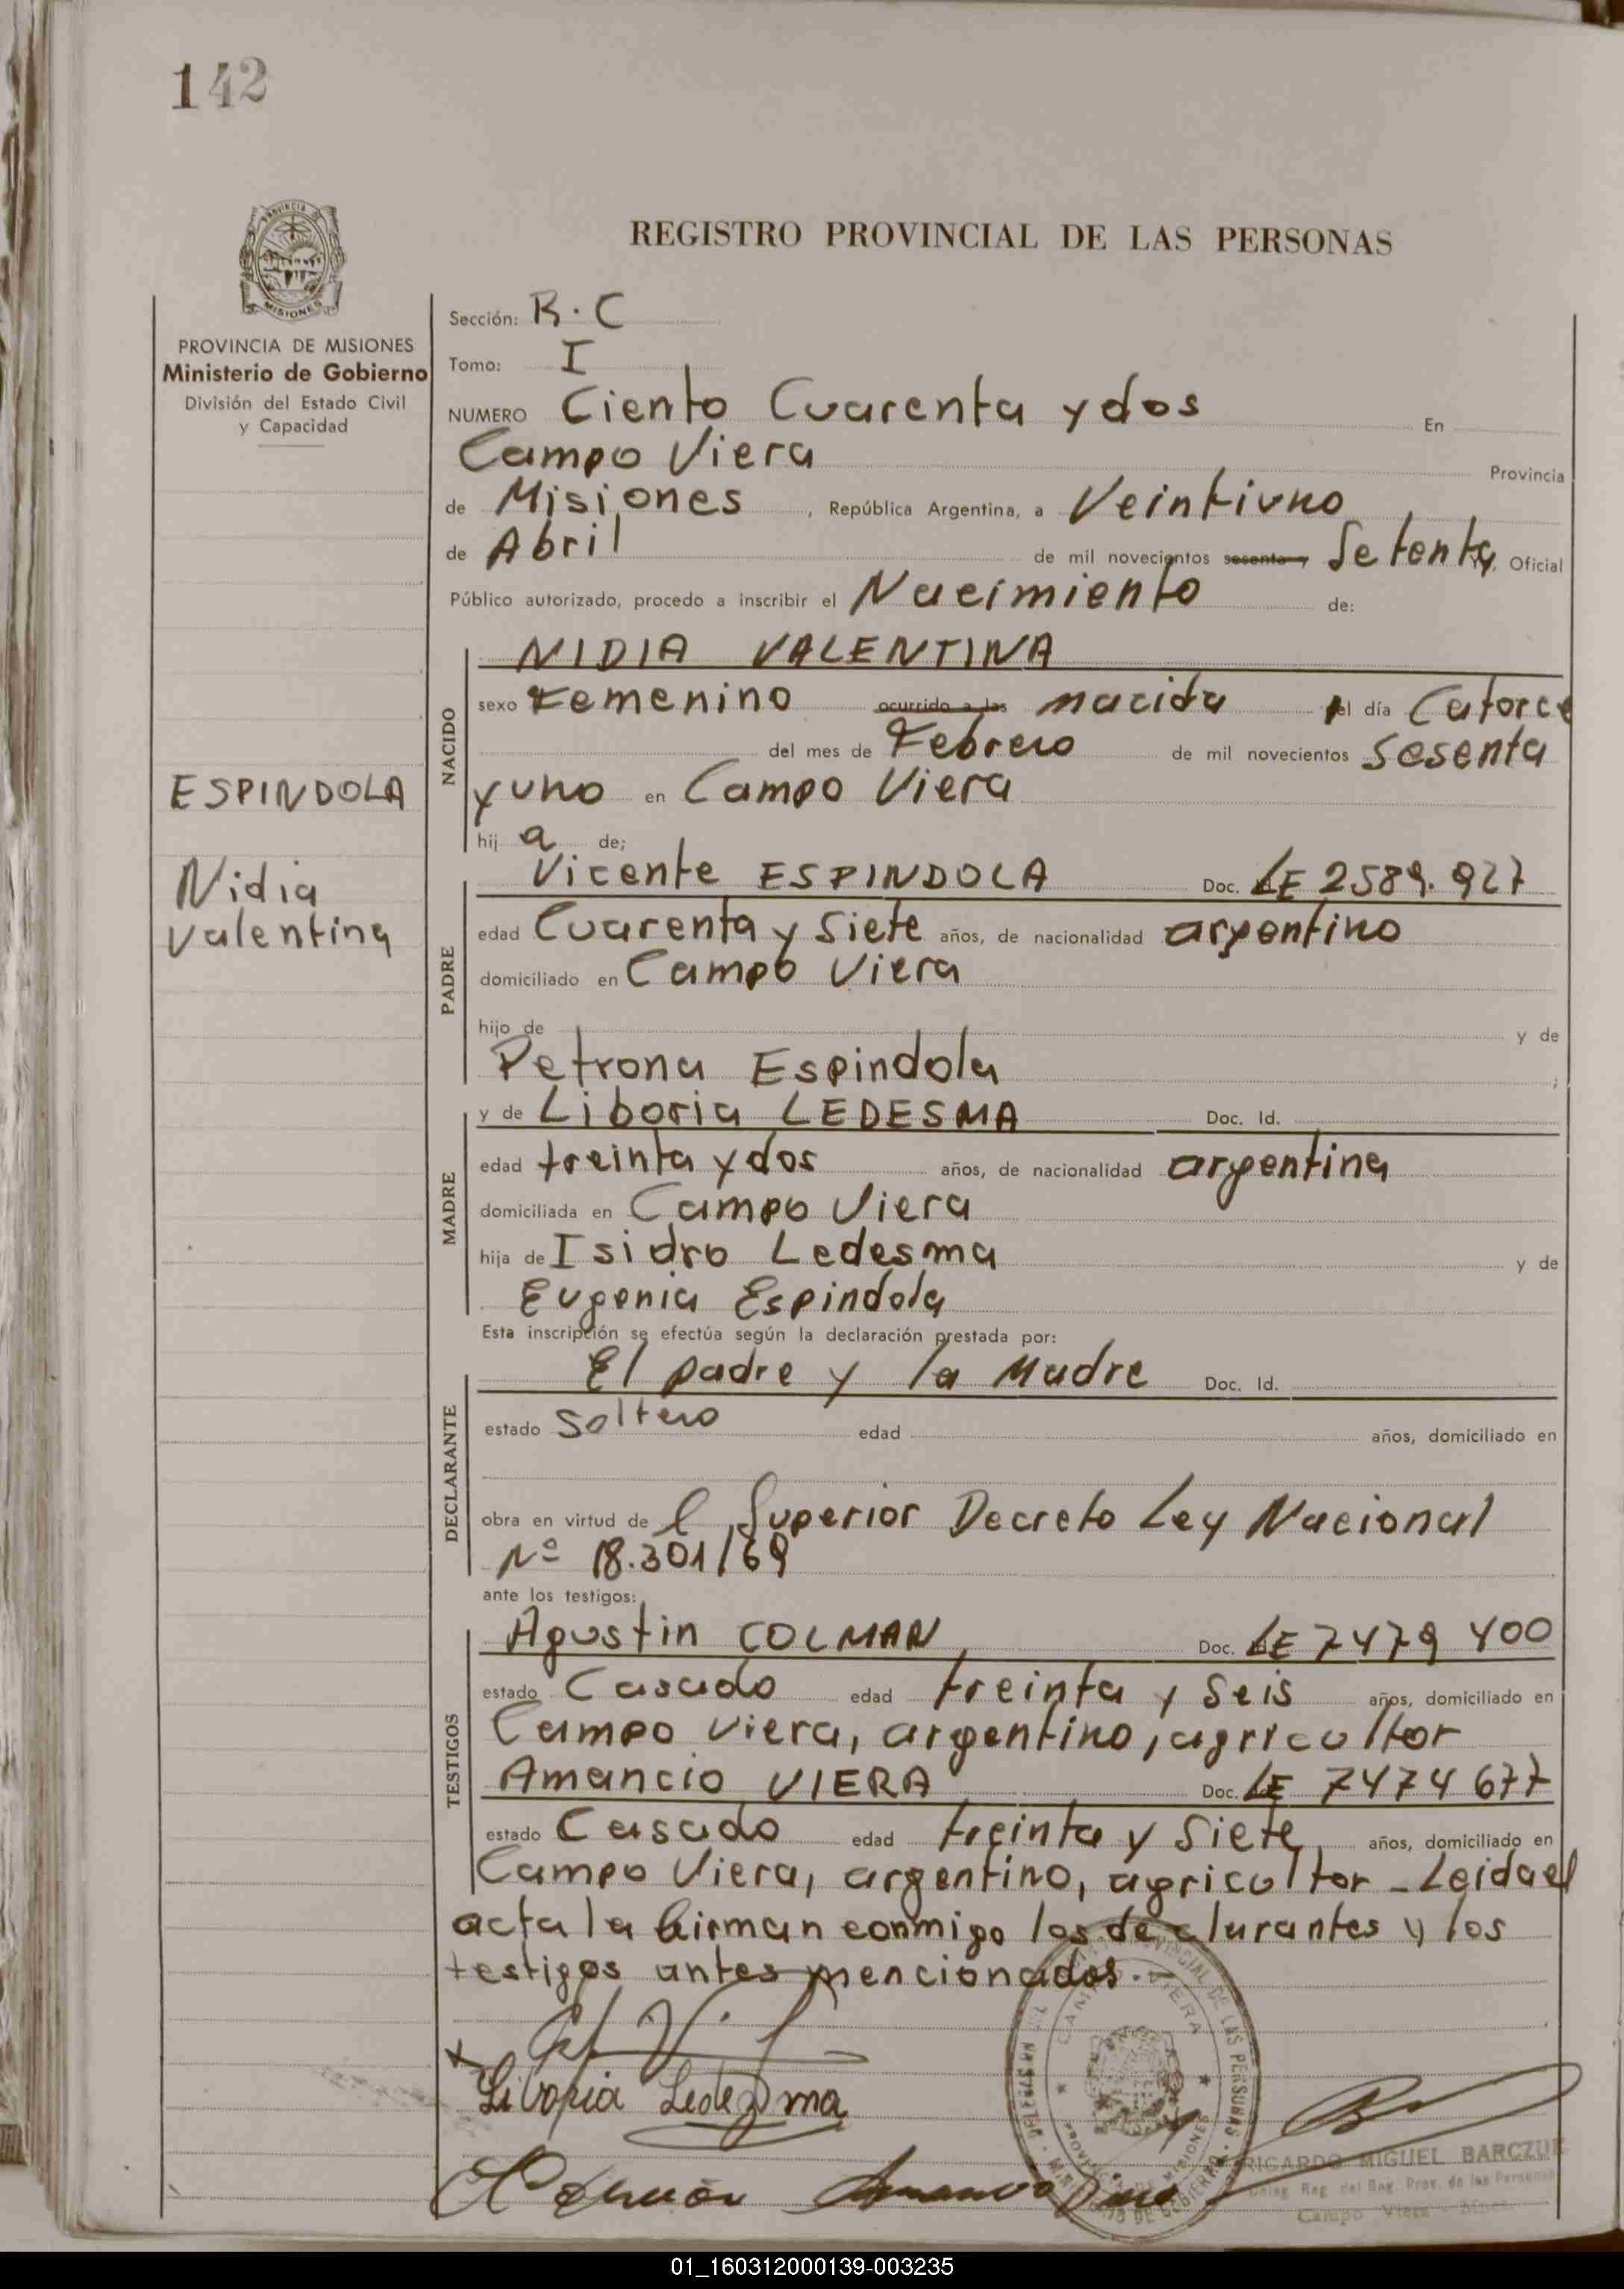 142
REGISTRO PROVINCIAL DE LAS PERSONAS
PROVINCIA DE MISIONES
Ministerio de Gobierno
División del Estado Civil
y Capacidad
Sección: R.C
Tomo: I
NUMERO Ciento Cuarenta y dos En
Campo Viera Provincia
de Misiones, República Argentina, a Veintiuno
de Abril de mil novecientos sesenta y Setenta, Oficial
Público autorizado, procedo a inscribir el Nacimiento de:
NACIDO
NIDIA VALENTINA
sexo Femenino ocurrido a las nacida el día Catorce
del mes de Febrero de mil novecientos Sesenta
y uno en Campo Viera
hij a de;
ESPINDOLA
Nidia
Valentina
PADRE
Vicente ESPINDOLA Doc. LE 2589.927
edad Cuarenta y Siete años, de nacionalidad argentino
domiciliado en Campo Viera
hijo de y de
Petrona Espindola ;
MADRE
y de Liboria LEDESMA Doc. Id.
edad treinta y dos años, de nacionalidad argentina
domiciliada en Campo Viera
hija de Isidro Ledesma y de
Eugenia Espindola
Esta inscripción se efectúa según la declaración prestada por:
DECLARANTE
El padre y la Madre Doc. Id.
estado Soltero edad años, domiciliado en
obra en virtud de l Superior Decreto Ley Nacional
Nº 18.301/69
ante los testigos:
TESTIGOS
Agustin COLMAN Doc. LE 7479 400
estado Casado edad treinta y Seis años, domiciliado en
Campo Viera, argentino, agricultor
Amancio VIERA Doc. LE 7474 677
estado Casado edad treinta y Siete años, domiciliado en
Campo Viera, argentino, agricultor - Leida el
acta la firman conmigo los declarantes y los
testigos antes mencionados.-
Liboria Ledezma
RICARDO MIGUEL BARCZUK
Reg. del Reg. Prov. de las Personas
Campo Viera
01_160312000139-003235